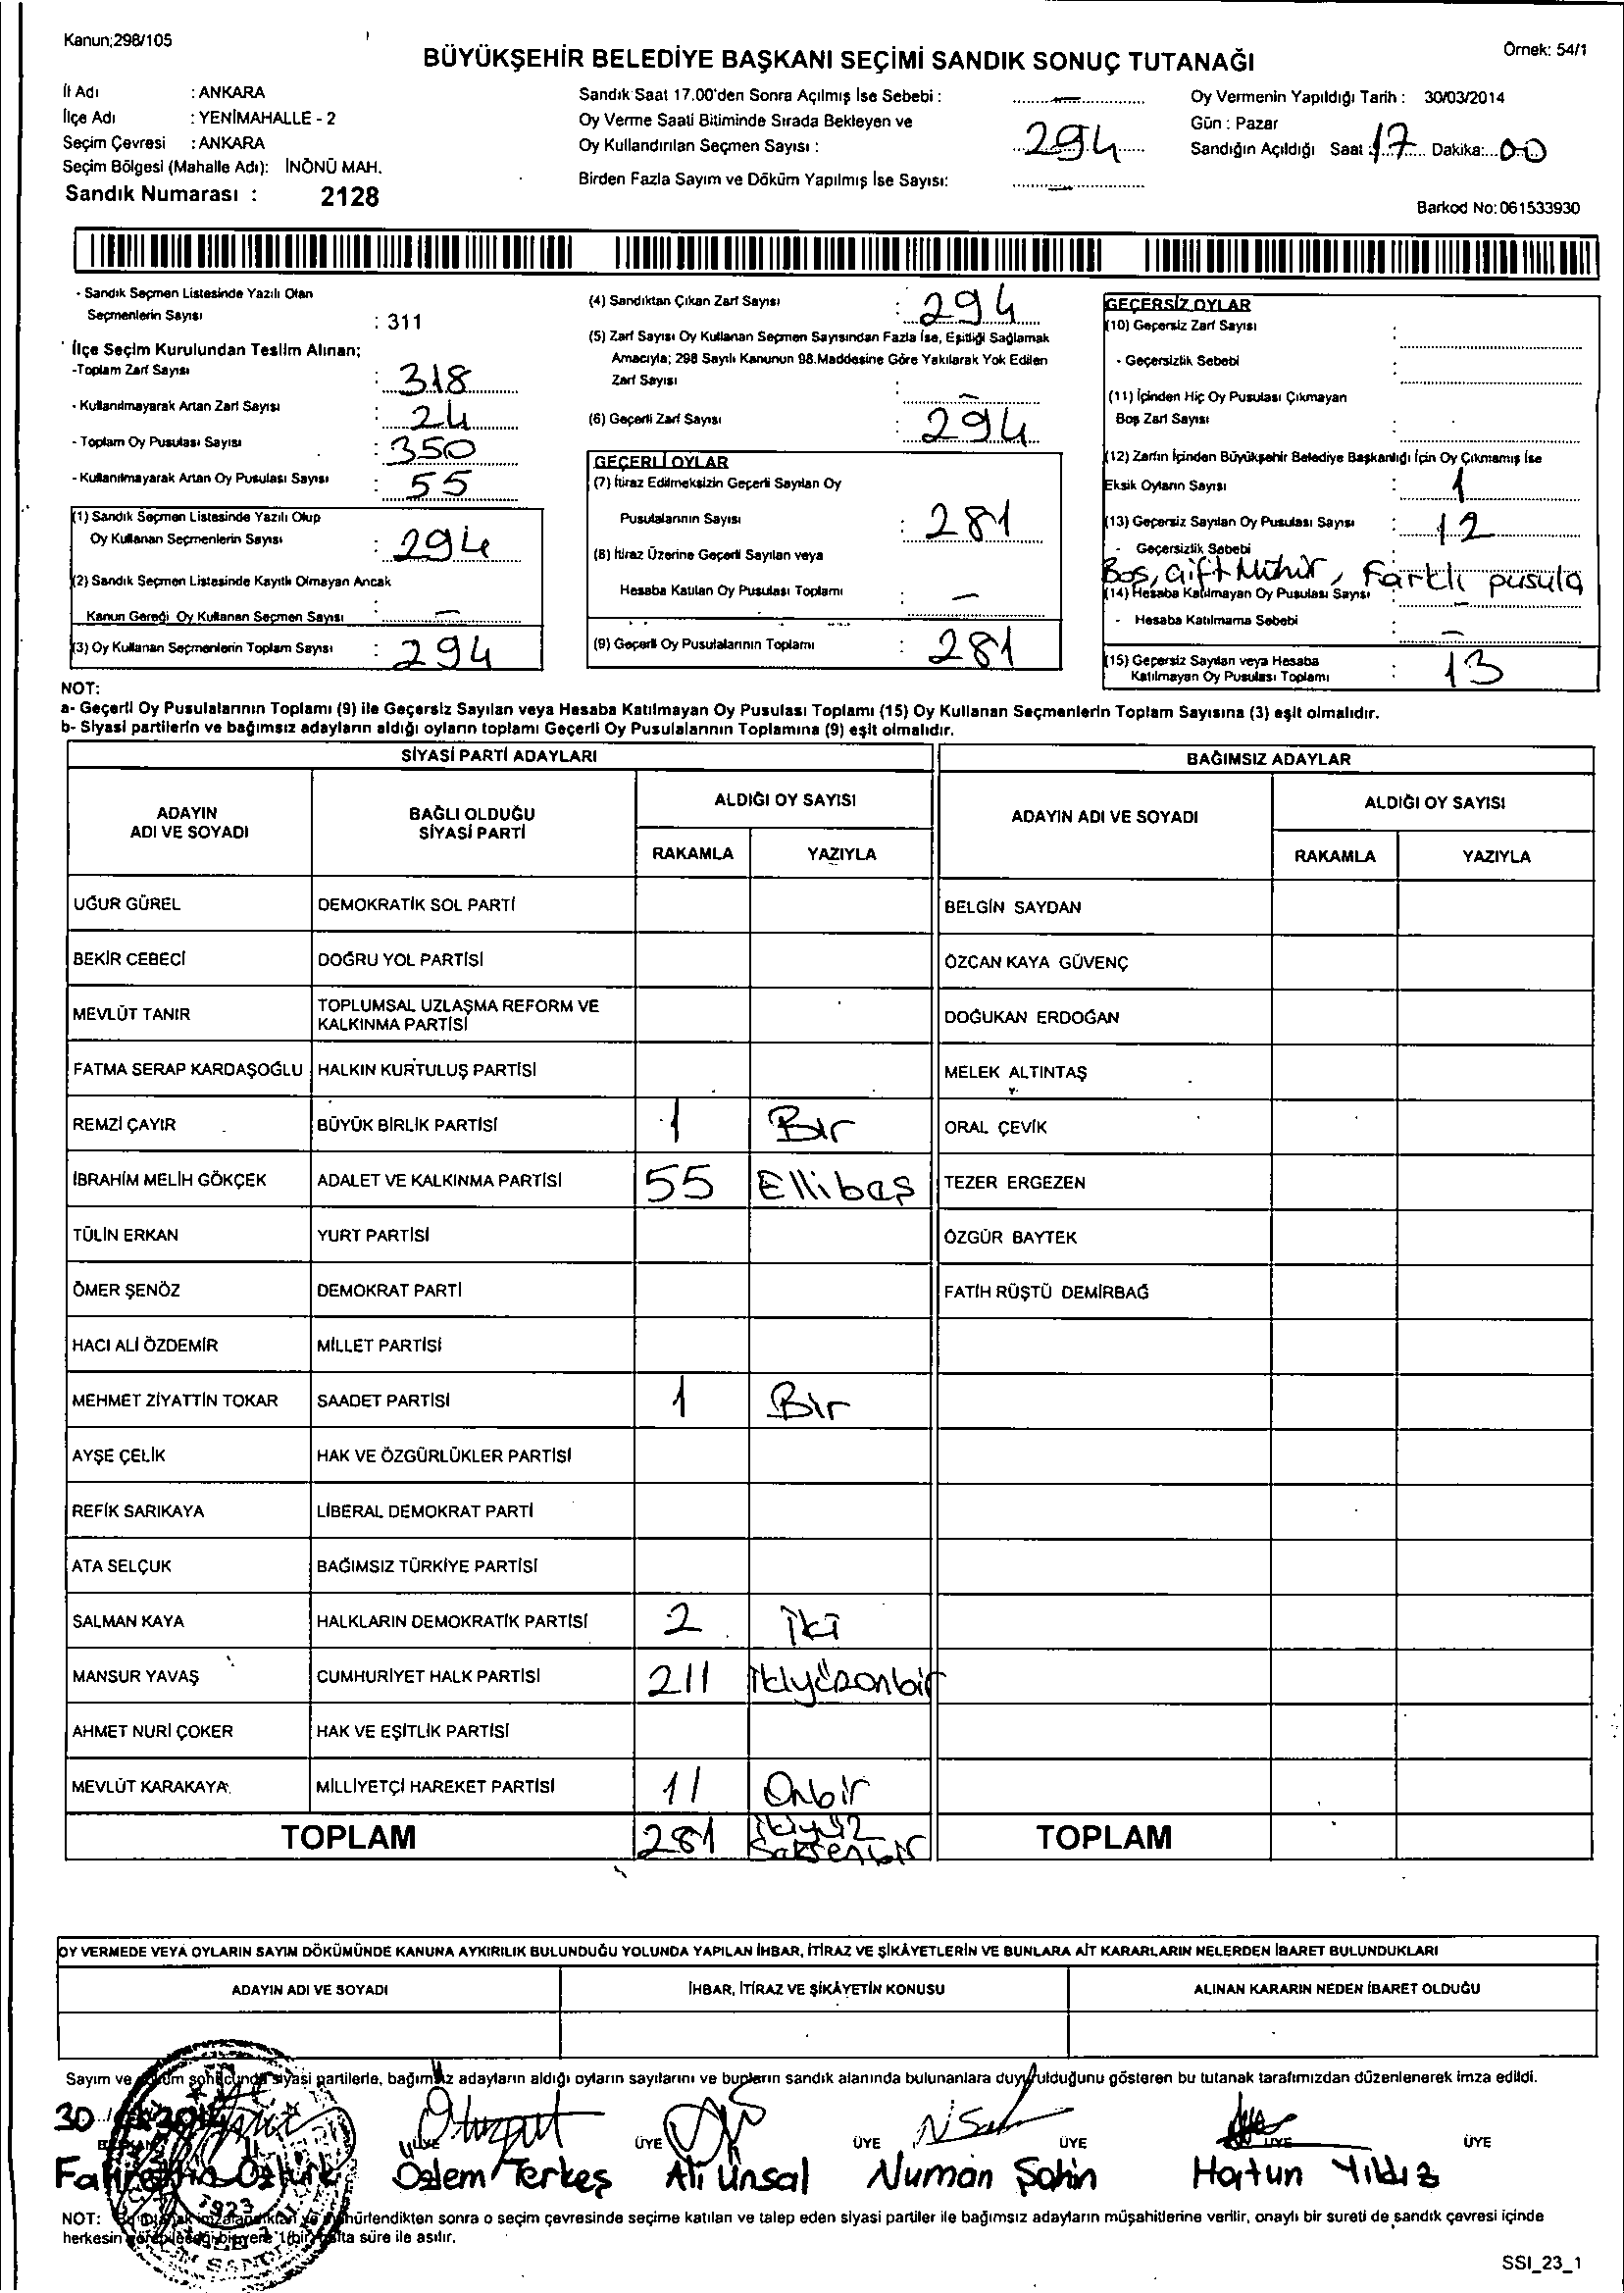 Kanun;298/105
BÜYÜKŞEHİR BELEDİYE BAŞKANI SEÇİMİ SANDIK SONUÇ TUTANAĞI
Örnek: 54/1
İl Adı : ANKARA
İlçe Adı : YENİMAHALLE - 2
Seçim Çevresi : ANKARA
Seçim Bölgesi (Mahalle Adı): İNÖNÜ MAH.
Sandık Numarası : 2128
Sandık Saat 17.00'den Sonra Açılmış İse Sebebi : —
Oy Verme Saati Bitiminde Sırada Bekleyen ve
Oy Kullandırılan Seçmen Sayısı : 294
Birden Fazla Sayım ve Döküm Yapılmış İse Sayısı: —
Oy Vermenin Yapıldığı Tarih : 30/03/2014
Gün : Pazar
Sandığın Açıldığı Saat : 17 Dakika: 00
Barkod No: 061533930
- Sandık Seçmen Listesinde Yazılı Olan
Seçmenlerin Sayısı : 311
İlçe Seçim Kurulundan Teslim Alınan;
-Toplam Zarf Sayısı : 318
- Kullanılmayarak Artan Zarf Sayısı : 24
- Toplam Oy Pusulası Sayısı : 350
- Kullanılmayarak Artan Oy Pusulası Sayısı : 55
(1) Sandık Seçmen Listesinde Yazılı Olup
Oy Kullanan Seçmenlerin Sayısı : 294
(2) Sandık Seçmen Listesinde Kayıtlı Olmayan Ancak
Kanun Gereği Oy Kullanan Seçmen Sayısı : —
(3) Oy Kullanan Seçmenlerin Toplam Sayısı : 294
(4) Sandıktan Çıkan Zarf Sayısı : 294
(5) Zarf Sayısı Oy Kullanan Seçmen Sayısından Fazla İse, Eşitliği Sağlamak
Amacıyla; 298 Sayılı Kanunun 98.Maddesine Göre Yakılarak Yok Edilen
Zarf Sayısı : —
(6) Geçerli Zarf Sayısı : 294
GEÇERLİ OYLAR
(7) İtiraz Edilmeksizin Geçerli Sayılan Oy
Pusulalarının Sayısı : 281
(8) İtiraz Üzerine Geçerli Sayılan veya
Hesaba Katılan Oy Pusulası Toplamı : —
(9) Geçerli Oy Pusulalarının Toplamı : 281
GEÇERSİZ OYLAR
(10) Geçersiz Zarf Sayısı :
- Geçersizlik Sebebi :
(11) İçinden Hiç Oy Pusulası Çıkmayan
Boş Zarf Sayısı :
(12) Zarfın İçinden Büyükşehir Belediye Başkanlığı İçin Oy Çıkmamış İse
Eksik Oyların Sayısı : 1
(13) Geçersiz Sayılan Oy Pusulası Sayısı : 12
- Geçersizlik Sebebi
Boş, çift Mühür, Farklı pusula
(14) Hesaba Katılmayan Oy Pusulası Sayısı —
- Hesaba Katılmama Sebebi : —
(15) Geçersiz Sayılan veya Hesaba
Katılmayan Oy Pusulası Toplamı : 13
NOT:
a- Geçerli Oy Pusulalarının Toplamı (9) ile Geçersiz Sayılan veya Hesaba Katılmayan Oy Pusulası Toplamı (15) Oy Kullanan Seçmenlerin Toplam Sayısına (3) eşit olmalıdır.
b- Siyasi partilerin ve bağımsız adayların aldığı oyların toplamı Geçerli Oy Pusulalarının Toplamına (9) eşit olmalıdır.
SİYASİ PARTİ ADAYLARI
BAĞIMSIZ ADAYLAR
ADAYIN
ADI VE SOYADI
BAĞLI OLDUĞU
SİYASİ PARTİ
ALDIĞI OY SAYISI
RAKAMLA YAZIYLA
ADAYIN ADI VE SOYADI
ALDIĞI OY SAYISI
RAKAMLA YAZIYLA
UĞUR GÜREL DEMOKRATİK SOL PARTİ BELGİN SAYDAN
BEKİR CEBECİ DOĞRU YOL PARTİSİ ÖZCAN KAYA GÜVENÇ
MEVLÜT TANIR TOPLUMSAL UZLAŞMA REFORM VE
KALKINMA PARTİSİ DOĞUKAN ERDOĞAN
FATMA SERAP KARDAŞOĞLU HALKIN KURTULUŞ PARTİSİ MELEK ALTINTAŞ
REMZİ ÇAYIR BÜYÜK BİRLİK PARTİSİ 1 Bir ORAL ÇEVİK
İBRAHİM MELİH GÖKÇEK ADALET VE KALKINMA PARTİSİ 55 Ellibaş TEZER ERGEZEN
TÜLİN ERKAN YURT PARTİSİ ÖZGÜR BAYTEK
ÖMER ŞENÖZ DEMOKRAT PARTİ FATİH RÜŞTÜ DEMİRBAĞ
HACI ALİ ÖZDEMİR MİLLET PARTİSİ
MEHMET ZİYATTİN TOKAR SAADET PARTİSİ 1 Bir
AYŞE ÇELİK HAK VE ÖZGÜRLÜKLER PARTİSİ
REFİK SARIKAYA LİBERAL DEMOKRAT PARTİ
ATA SELÇUK BAĞIMSIZ TÜRKİYE PARTİSİ
SALMAN KAYA HALKLARIN DEMOKRATİK PARTİSİ 2 İki
MANSUR YAVAŞ CUMHURİYET HALK PARTİSİ 211 İkiyüzonbir
AHMET NURİ ÇOKER HAK VE EŞİTLİK PARTİSİ
MEVLÜT KARAKAYA MİLLİYETÇİ HAREKET PARTİSİ 11 Onbir
TOPLAM 281 İkiyüz
Saksenbir TOPLAM
OY VERMEDE VEYA OYLARIN SAYIM DÖKÜMÜNDE KANUNA AYKIRILIK BULUNDUĞU YOLUNDA YAPILAN İHBAR, İTİRAZ VE ŞİKÂYETLERİN VE BUNLARA AİT KARARLARIN NELERDEN İBARET BULUNDUKLARI
ADAYIN ADI VE SOYADI İHBAR, İTİRAZ VE ŞİKÂYETİN KONUSU ALINAN KARARIN NEDEN İBARET OLDUĞU
Sayım ve döküm sonucunda siyasi partilerle, bağımsız adayların aldığı oyların sayılarını ve bunların sandık alanında bulunanlara duyurulduğunu gösteren bu tutanak tarafımızdan düzenlenerek imza edildi.
30
ÜYE ÜYE ÜYE ÜYE ÜYE ÜYE
Fahrettin Öztürk Özlem Terkeş Ali Ünsal Numan Şahin Hatun Yıldız
1923
NOT: Bu tutanak imzalandıktan ve mühürlendikten sonra o seçim çevresinde seçime katılan ve talep eden siyasi partiler ile bağımsız adayların müşahitlerine verilir, onaylı bir sureti de sandık çevresi içinde
herkesin görebileceği bir yere 1(bir) hafta süre ile asılır.
SSI_23_1